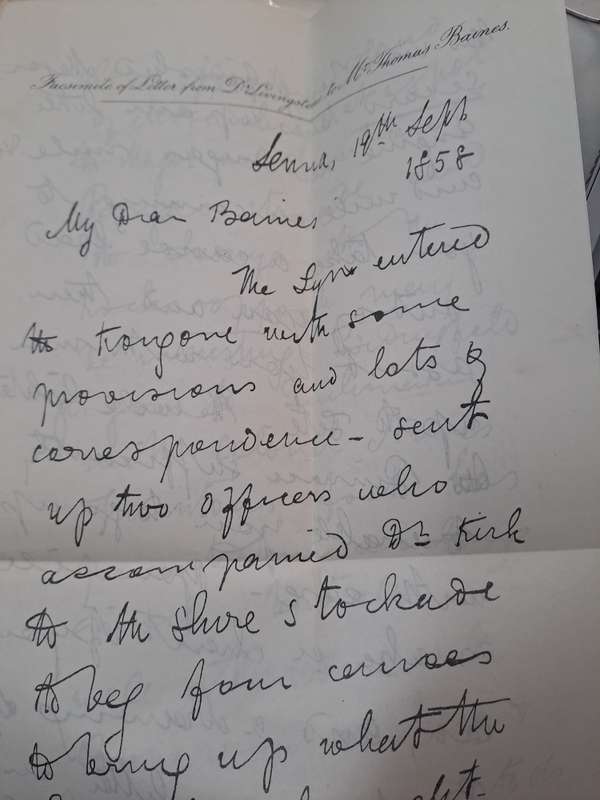 Facsimile of Letter from Dr Livingstone to Mr Thomas Baines.
Senna, 19th Sept
1858
My Dear Baines
The Lynx entered
the Kongone with some
provisions and lots of
correspondence - sent
up two officers who
accompanied Dr Kirk
to the Shire stockade
to beg four canoes
to bring up what the